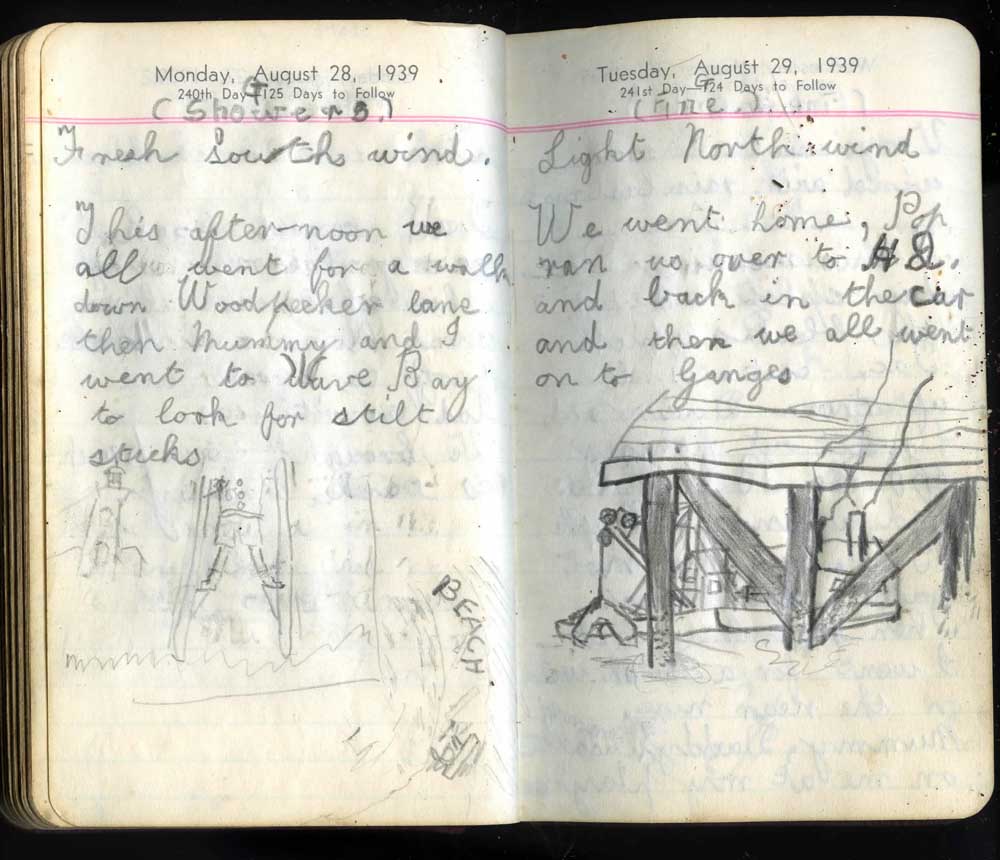 Monday, August 28, 1939
240th Day—125 Days to Follow
(Showers.)
Fresh South wind.
This after-noon we
all went for a walk
down Woodpecker lane
then Mummy and I
went to Wave Bay
to look for stilt
sticks
BEACH
Tuesday, August 29, 1939
241st Day—124 Days to Follow
(Fine)
Light North wind
We went home, Pop
ran us over to
and back in the car
and then we all went
on to Ganges